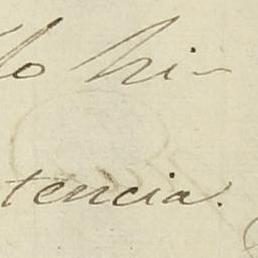 lo hi-
tencia.